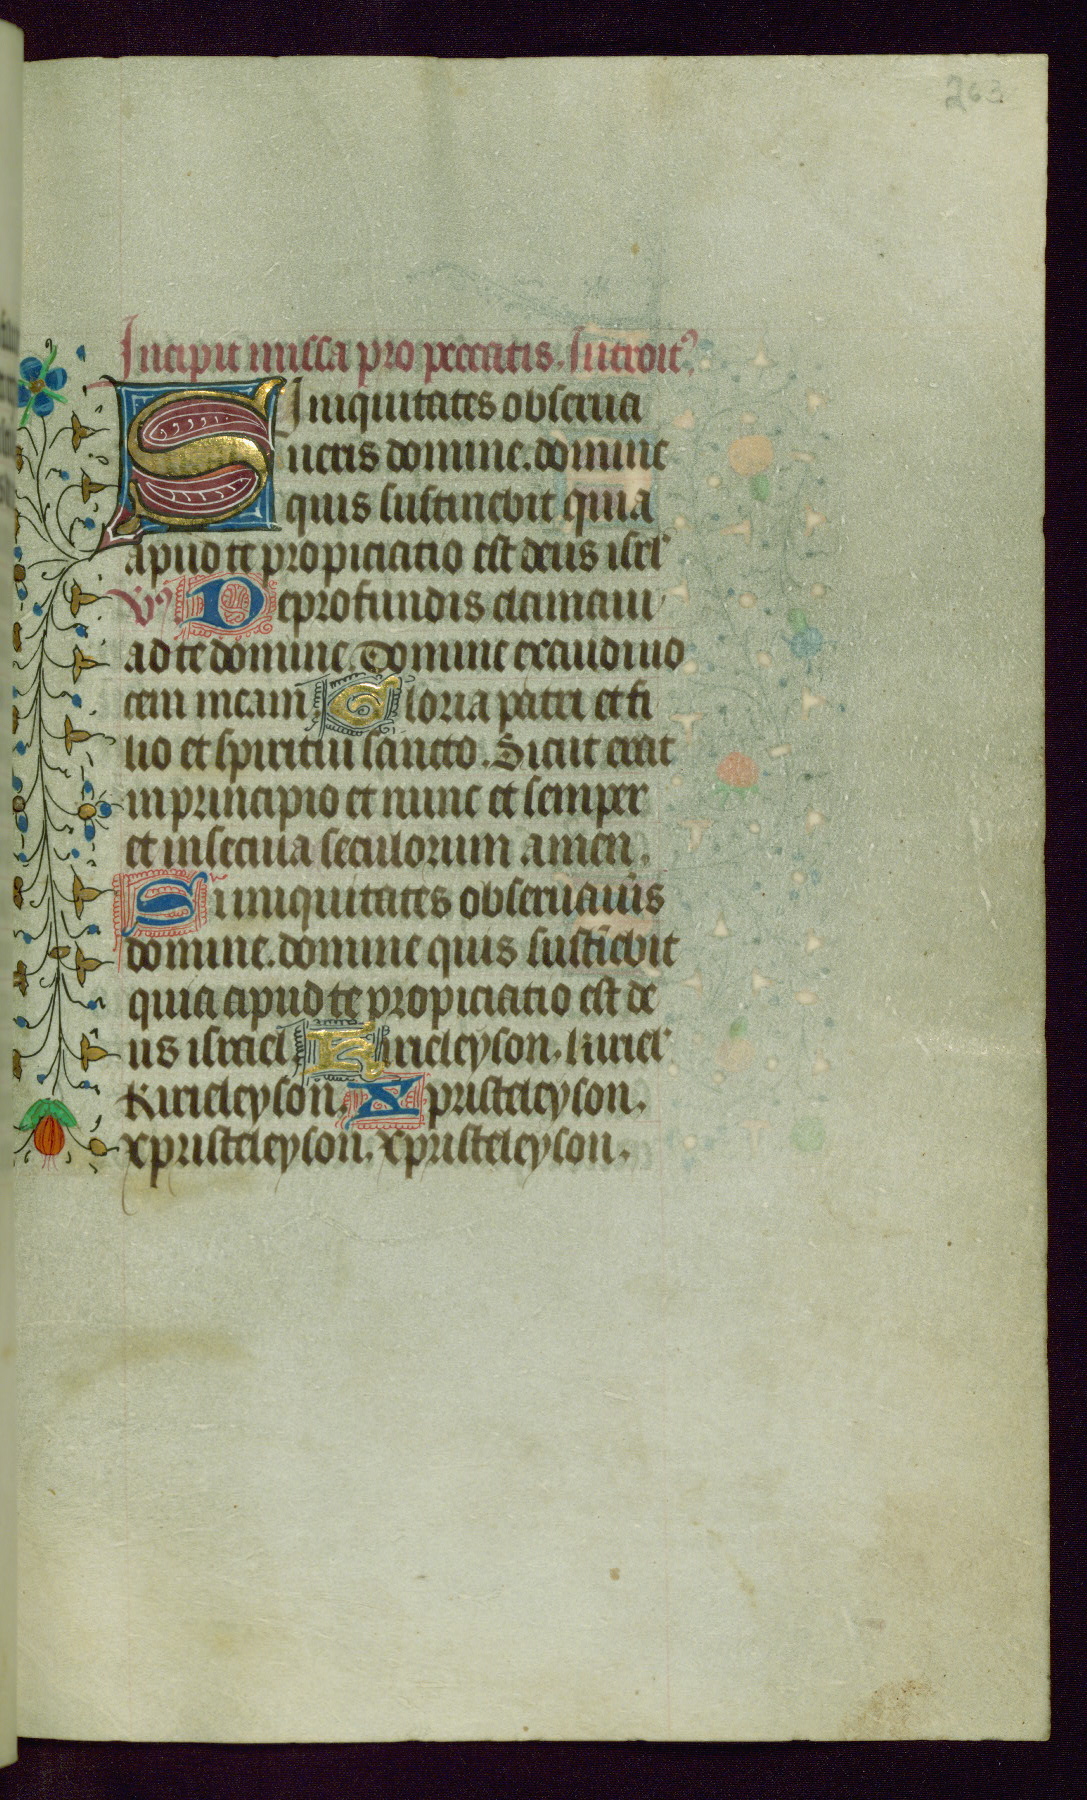 263
Incipit missa pro peccatis. Introit᾿
SI iniquitates obserua
ueris domine. domine
quis sustinebit quia
apud te propiciatio est deus isrl᾿
V᾿ De profundis clamaui
ad te domine. Domine exaudi uo
cem meam. Gloria patri et fi
lio et spiritui sancto. Sicut erat
in principio et nunc et semper
et in secula seculorum amen.
Si iniquitates obseruau᾿is
domine. domine quis sustīebit
quia apud te propiciatio est de
us israel. Kirieleyson. kiriel᾿
Kirieleyson. Xpristeleyson.
xpristeleyson. xpristeleyson.